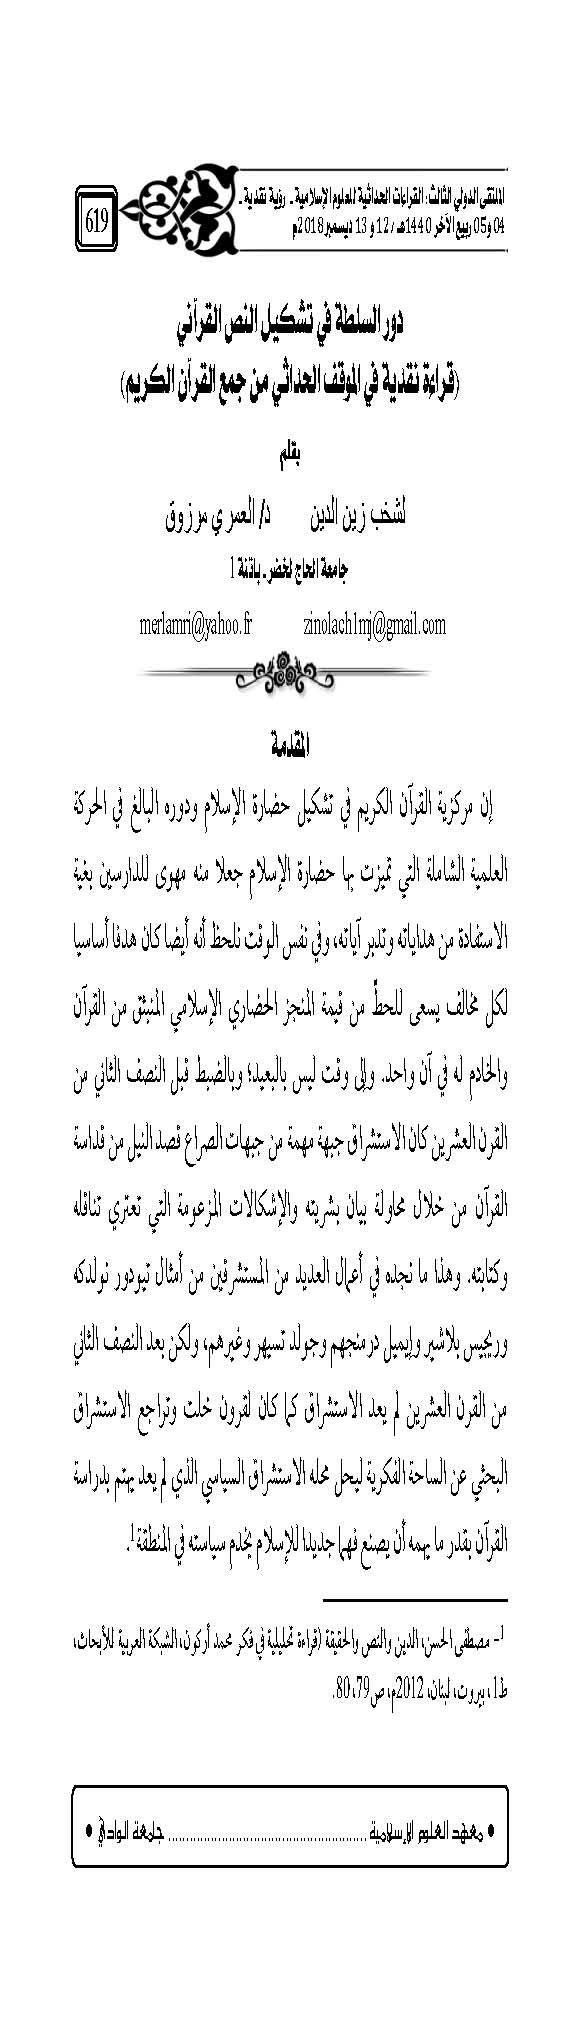 الملتقى الدولي الثالث: القراءات الحداثية للعلوم الإسلامية ـ رؤية نقدية ـ
04 و05 ربيع الآخر 1440هـ / 12 و 13 ديسمبر 2018م
619
دور السلطة في تشكيل النص القرآني
(قراءة نقدية في الموقف الحداثي من جمع القرآن الكريم)
بقلم
لشخب زين الدين د/ العمري مرزوق
جامعة الحاج لخضر ـ باتنة 1
zinolach1mj@gmail.com merlamri@yahoo.fr
المقدمة
إن مركزية القرآن الكريم في تشكيل حضارة الإسلام ودوره البالغ في الحركة
العلمية الشاملة التي تميزت بها حضارة الإسلام جعلا منه مهوى للدارسين بغية
الاستفادة من هداياته وتدبر آياته، وفي نفس الوقت نلحظ أنه أيضا كان هدفا أساسيا
لكل مخالف يسعى للحطِّ من قيمة المنجز الحضاري الإسلامي المنبثق من القرآن
والخادم له في آن واحد. وإلى وقت ليس بالبعيد؛ وبالضبط قبل النصف الثاني من
القرن العشرين كان الاستشراق جبهة مهمة من جبهات الصراع قصد النيل من قداسة
القرآن من خلال محاولة بيان بشريته والإشكالات المزعومة التي تعتري تناقله
وكتابته. وهذا ما نجده في أعمال العديد من المستشرقين من أمثال تيودور نولدكه
وريجيس بلاشير وإيميل درمنجهم وجولد تسيهر وغيرهم، ولكن بعد النصف الثاني
من القرن العشرين لم يعد الاستشراق كما كان لقرون خلت وتراجع الاستشراق
البحثي عن الساحة الفكرية ليحل محله الاستشراق السياسي الذي لم يعد يهتم بدراسة
القرآن بقدر ما يهمه أن يصنع فهما جديدا للإسلام يخدم سياسته في المنطقة1.
1- مصطفى الحسن، الدين والنص والحقيقة (قراءة تحليلية في فكر محمد أركون، الشبكة العربية للأبحاث،
ط1، بيروت، لبنان، 2012م، ص79، 80.
• معهد العلوم الإسلامية ........................................................ جامعة الوادي •